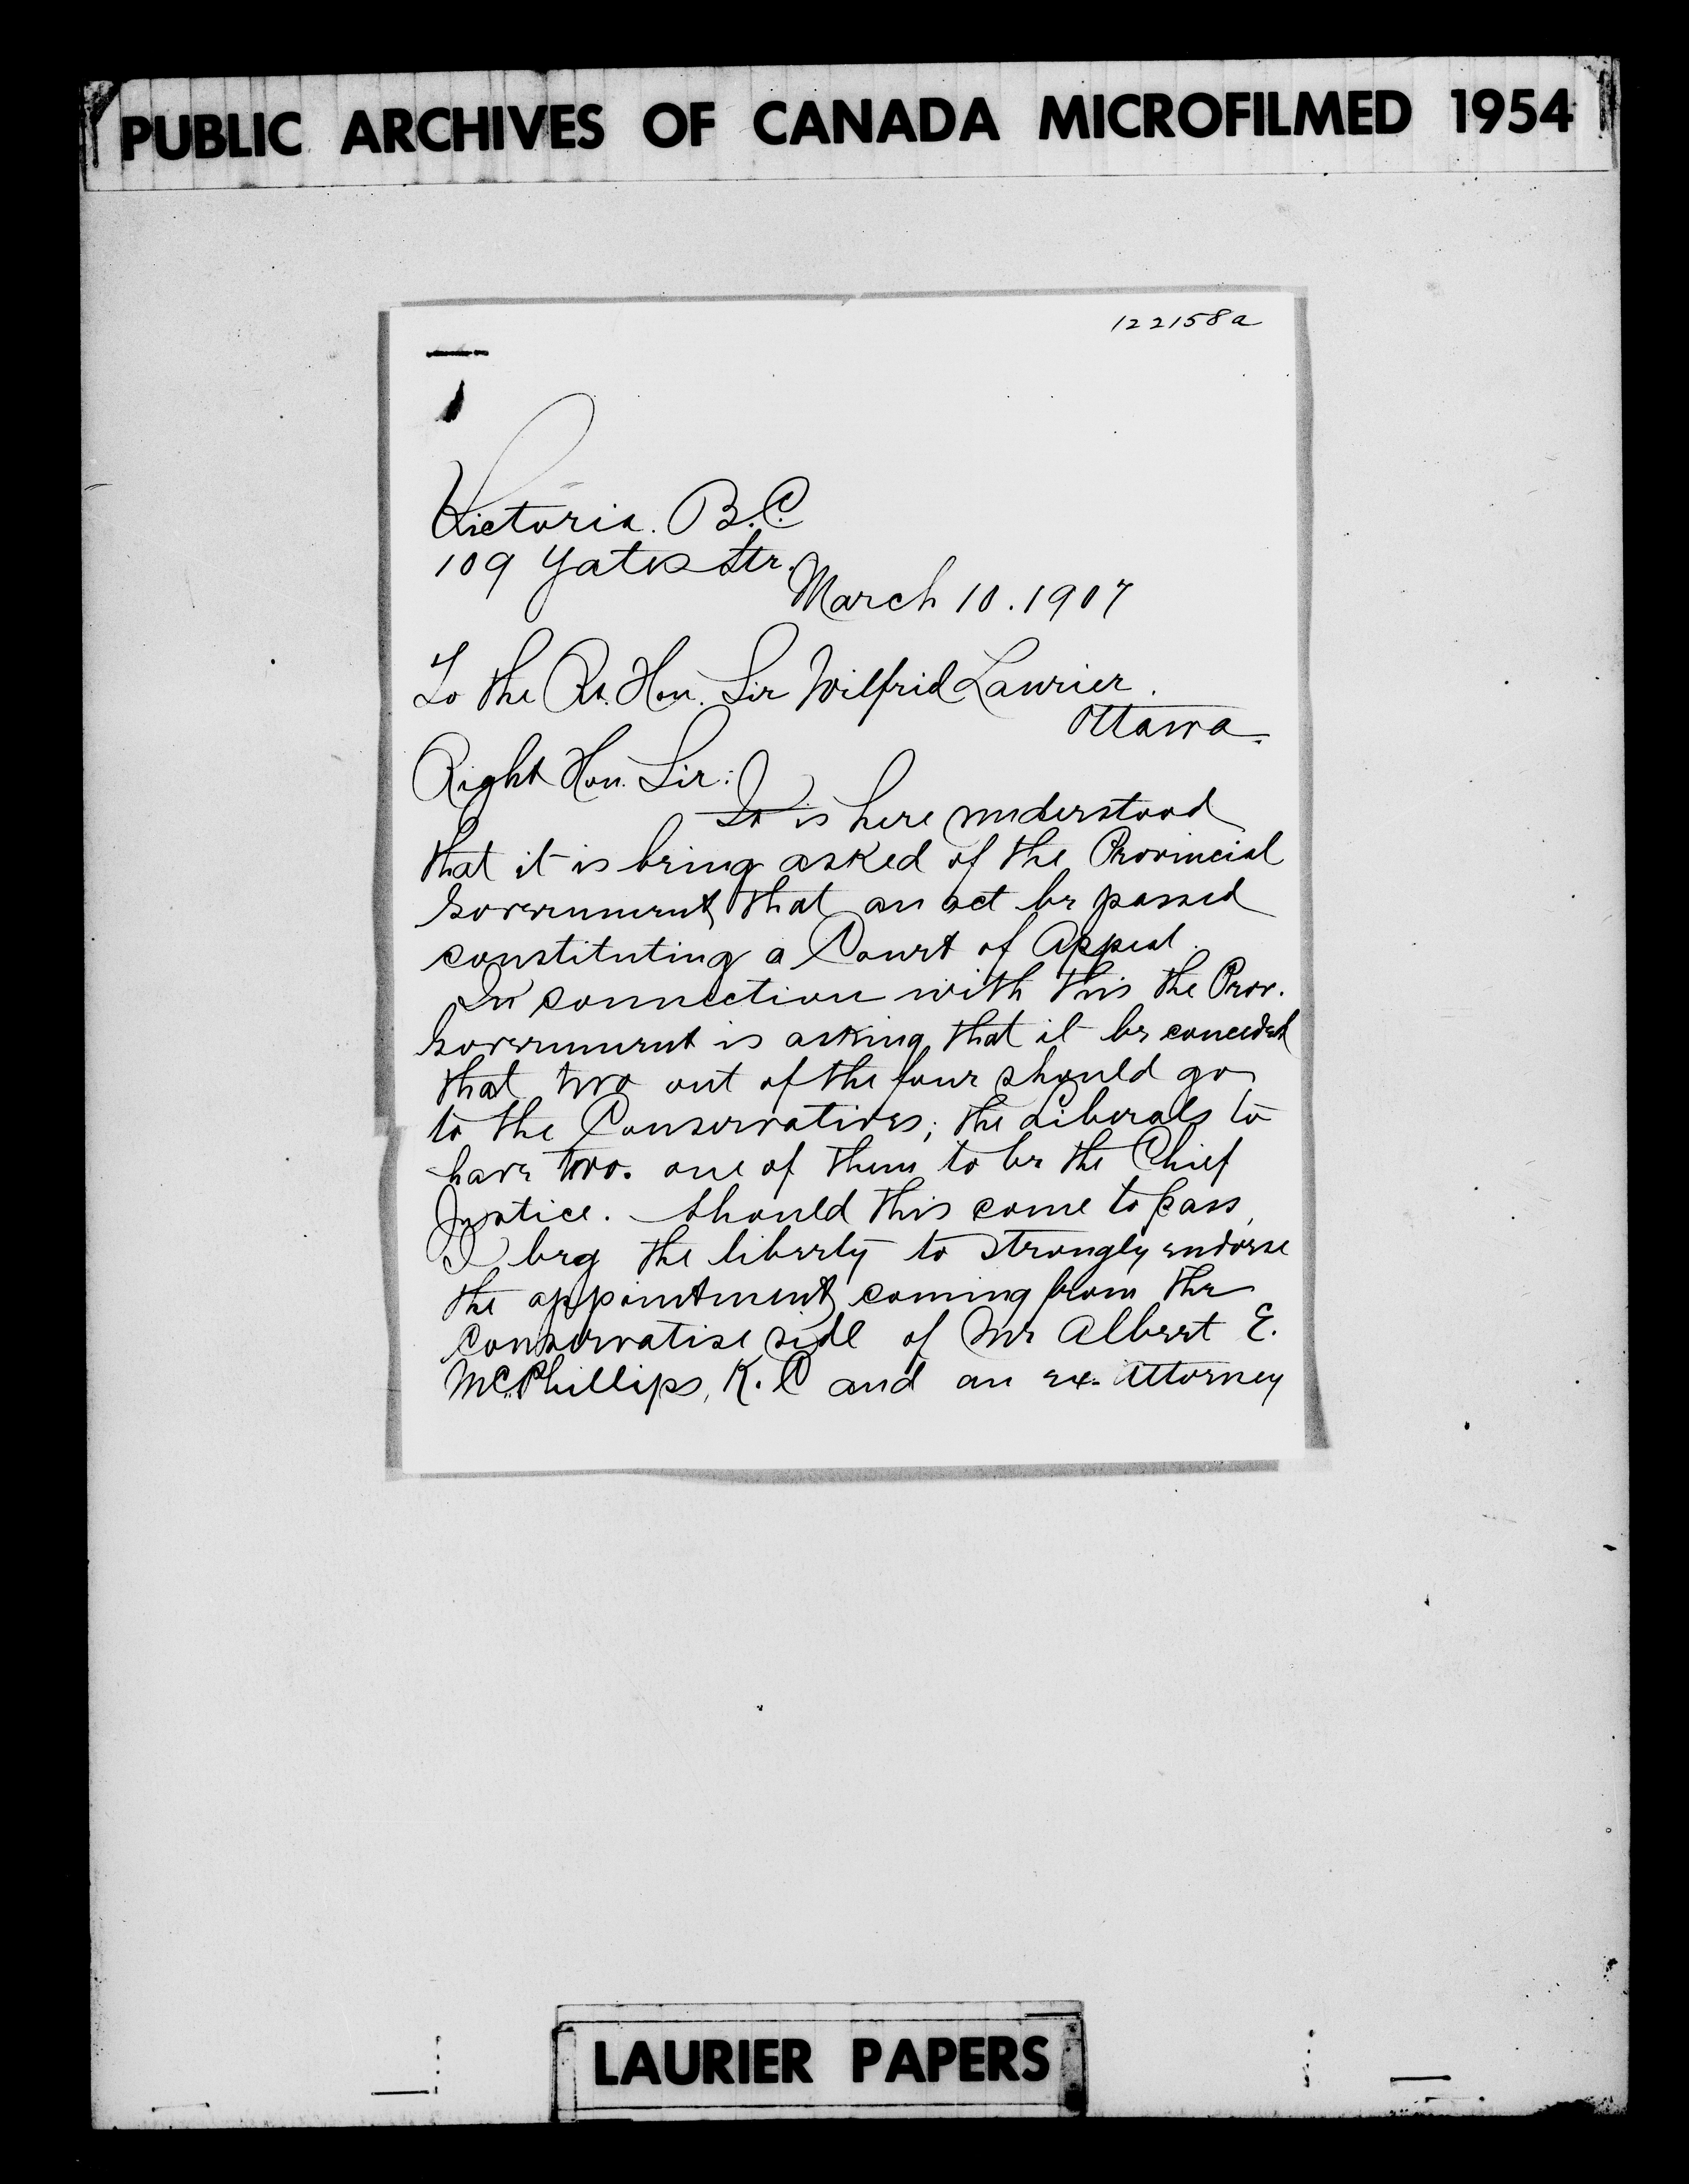 PUBLIC ARCHIVES OF CANADA MICROFILMED 1954
122158a
Victoria. B.C.
109 Yates Str.
March 10. 1907
To the Rt. Hon. Sir Wilfrid Laurier.
Ottawa.
Right Hon. Sir:
It is here understood
that it is being asked of the Provincial
Government that an act be passed
constituting a Court of Appeal.
In connection with this the Prov.
Government is asking that it be conceded
that two out of the four should go
to the Conservatives; the Liberals to
have two. one of them to be the Chief
Justice. Should this come to pass,
I beg the liberty to strongly endorse
the appointment coming from the
Conservative side of Mr Albert E.
McPhillips, K.C and an ex-Attorney
LAURIER PAPERS